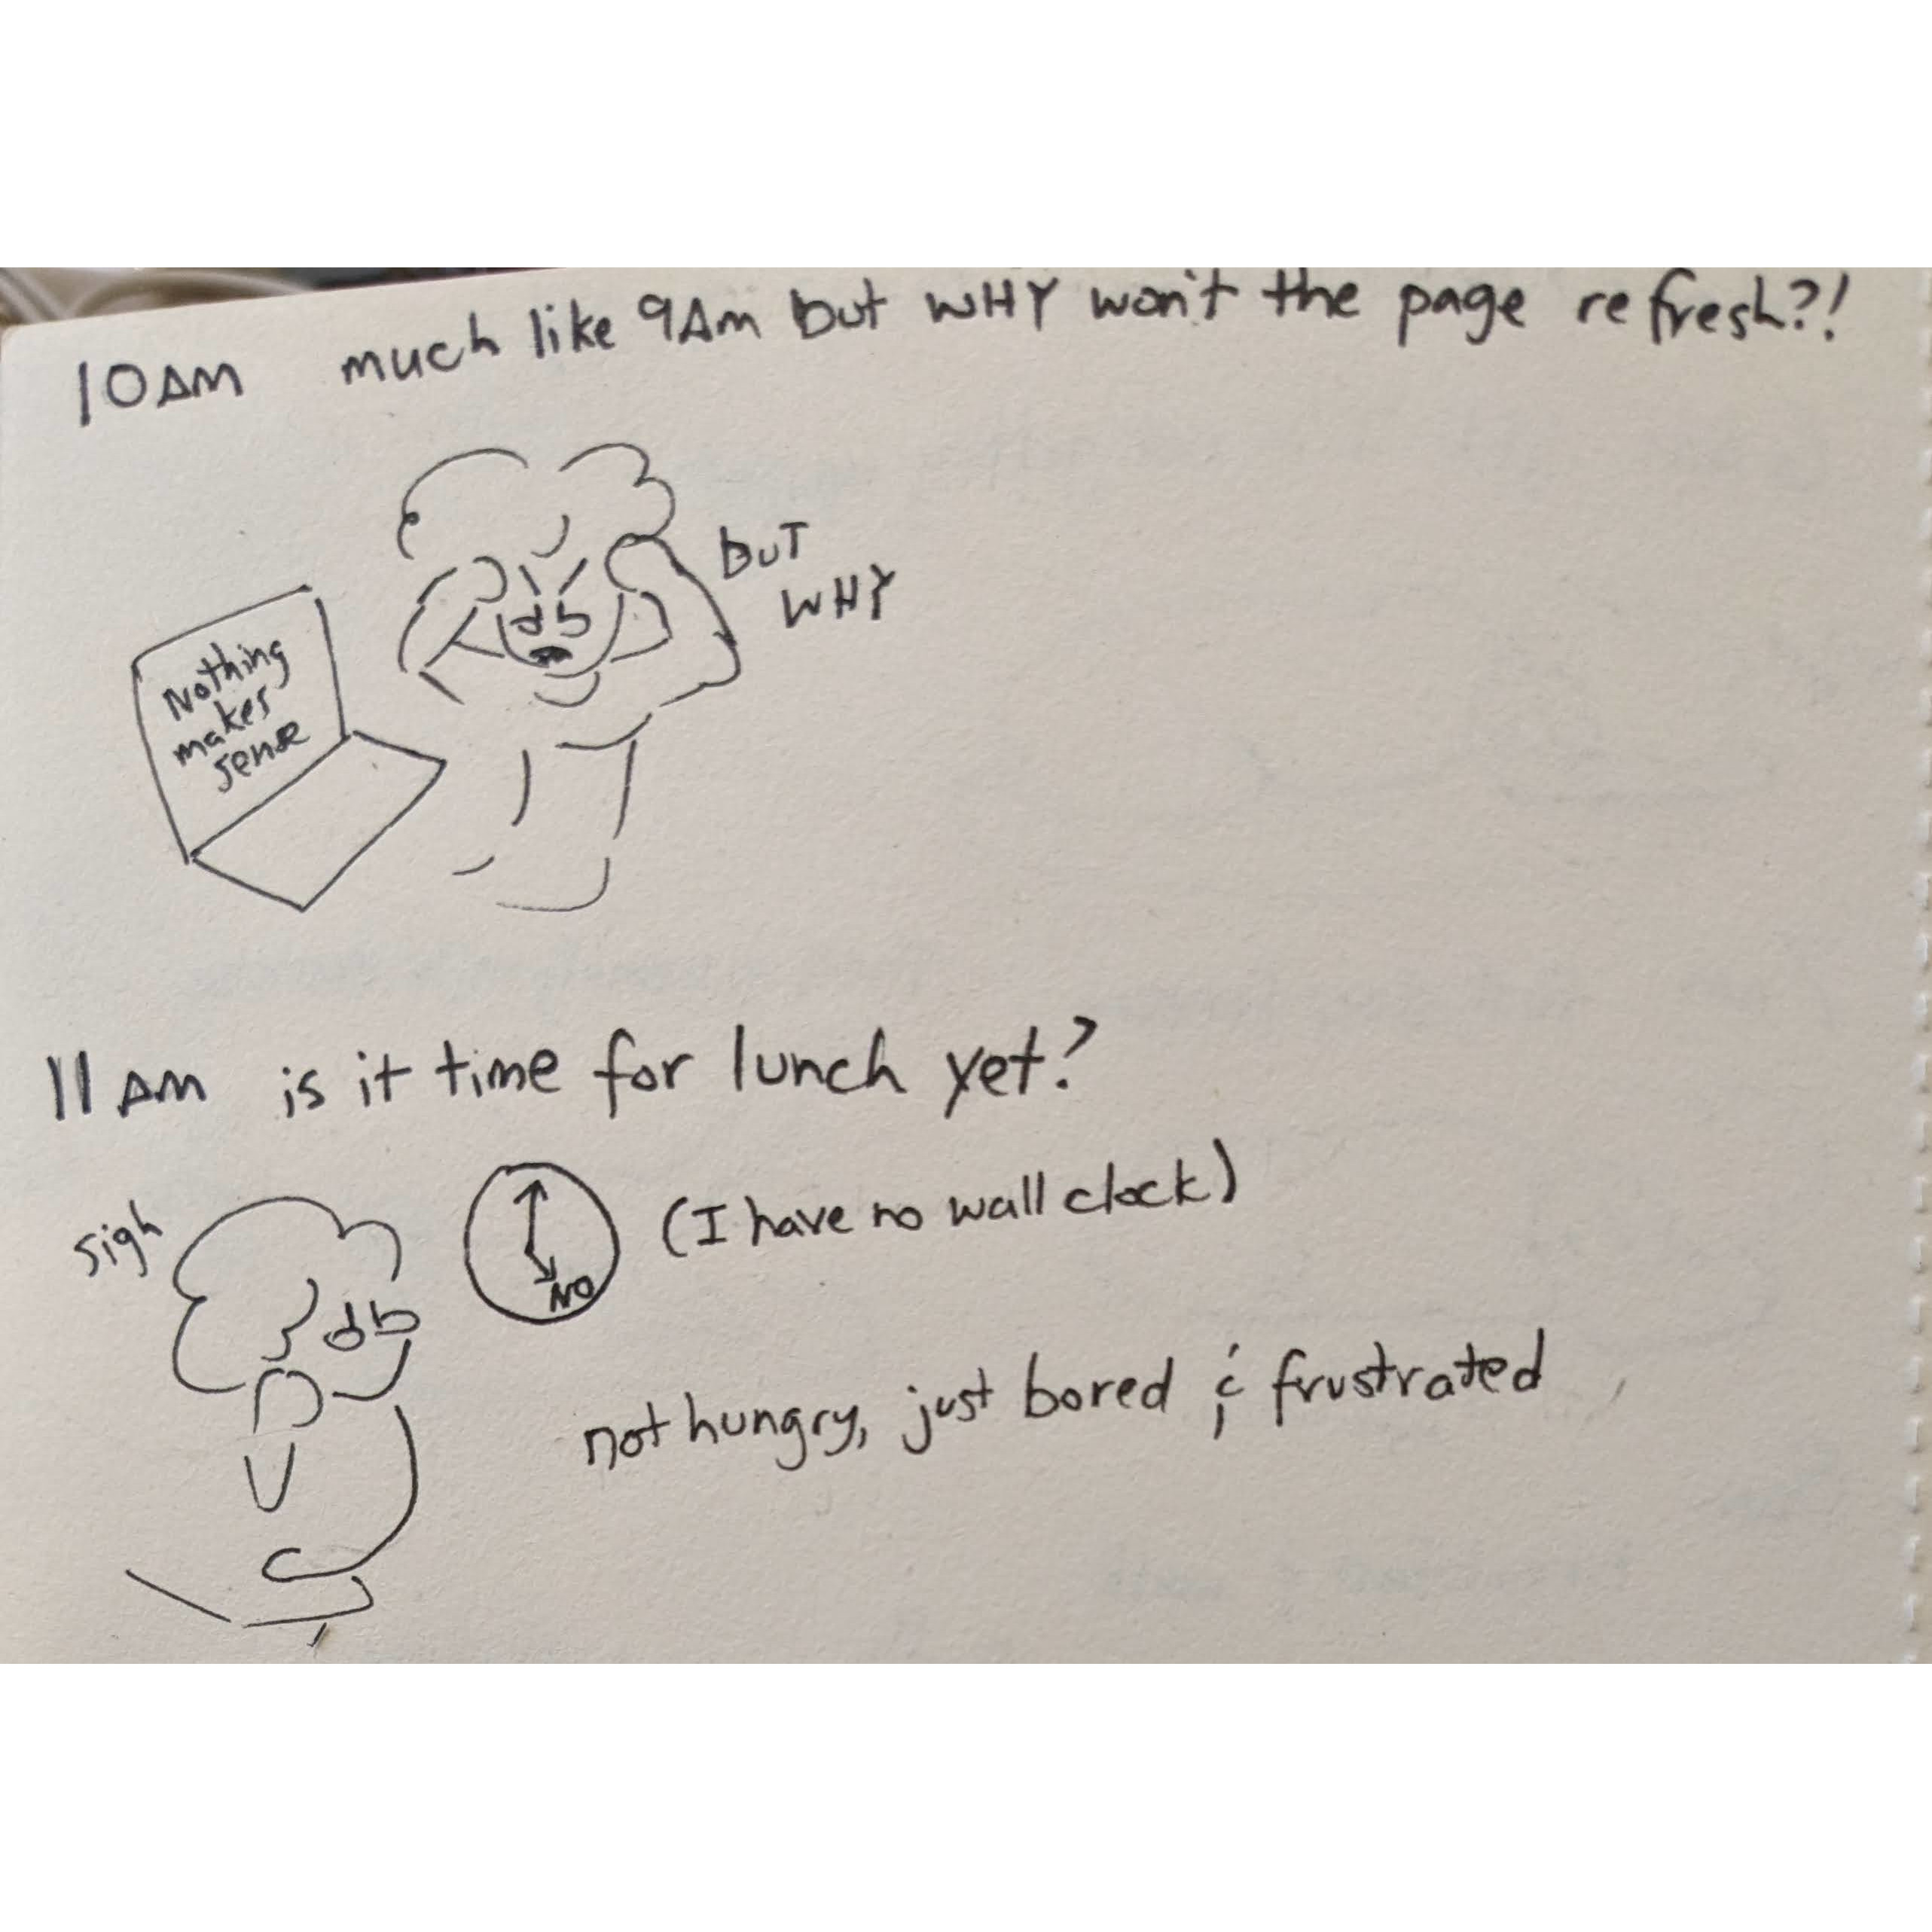 10AM much like 9AM but WHY won't the page refresh?!
BUT
WHY
Nothing
makes
sense
11 AM is it time for lunch yet?
sigh
NO
(I have no wall clock)
not hungry, just bored & frustrated